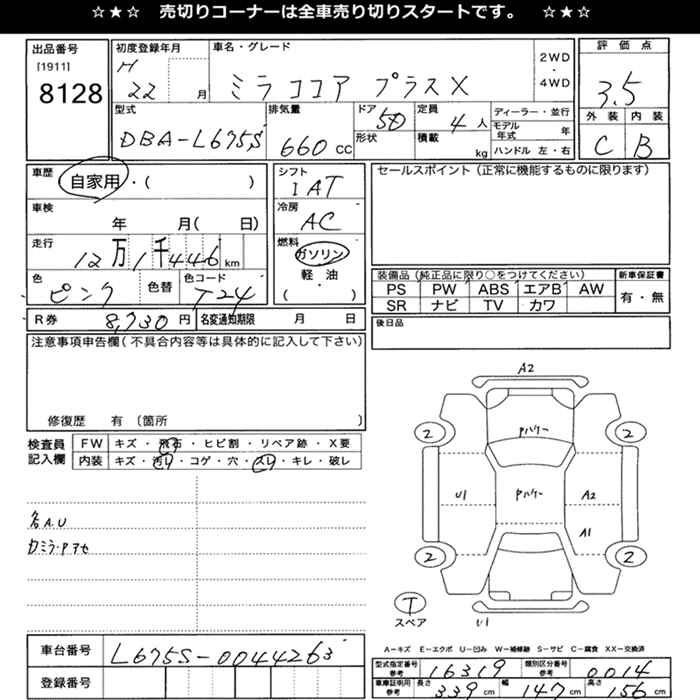 ☆★☆ 売切りコーナーは全車売り切りスタートです。 ☆★☆
出品番号
[1911]
8128
初度登録年月
H
22 月
車名・グレード
ミラココア プラスX
2WD
・
4WD
評価点
3.5
外装 内装
C B
型式
DBA-L675S
排気量
660 CC
ドア 5D
形状
定員 4人
積載 kg
ディーラー・並行
モデル年式 年
ハンドル 左・右
車歴
自家用・( )
車検
年 月( 日)
走行
12万1千446 km
色
ピンク
色替
色コード
T24
シフト
IAT
冷房
AC
燃料
ガソリン
軽・油
( )
セールスポイント(正常に機能するものに限ります)
装備品(純正品に限り○をつけてください)
PS PW ABS エアB AW
SR ナビ TV カワ
新車保証書
有・無
R券 8,730円 名変通知期限 月 日
後日品
注意事項申告欄(不具合内容等は具体的に記入して下さい)
修復歴 有 〔箇所 〕
検査員
記入欄
FW キズ・飛石・ヒビ割・リペア跡・X要
内装 キズ・汚レ・コゲ・穴・スレ・キレ・破レ
各A.U
カミラ・Pアセ
A2
Pハゲー
2 2
U1 Pハゲー A2
A1
2 2
T
スペア
U1
A-キズ E-エクボ U-凹み W-補修跡 S-サビ C-腐食 XX-交換済
車台番号 L675S-0044263
登録番号
型式指定番号
参考
16319
類別区分番号
参考
0014
車庫証明用
参考
長さ 339 cm 幅 147 cm 高さ 156 cm